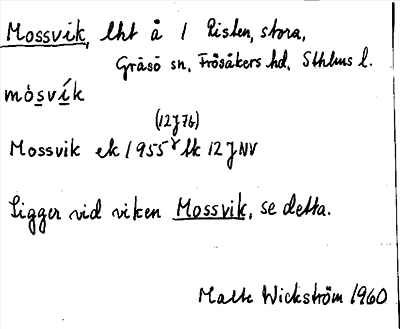 Mossvik, lht å 1 Risten, stora,
Gräsö sn, Frösåkers hd, Sthlms l.
mò̀svík
(12J7b)
Mossvik ek 1955 tk 12 J NV
Ligger vid viken Mossvik, se detta.
Malte Wickström 1960